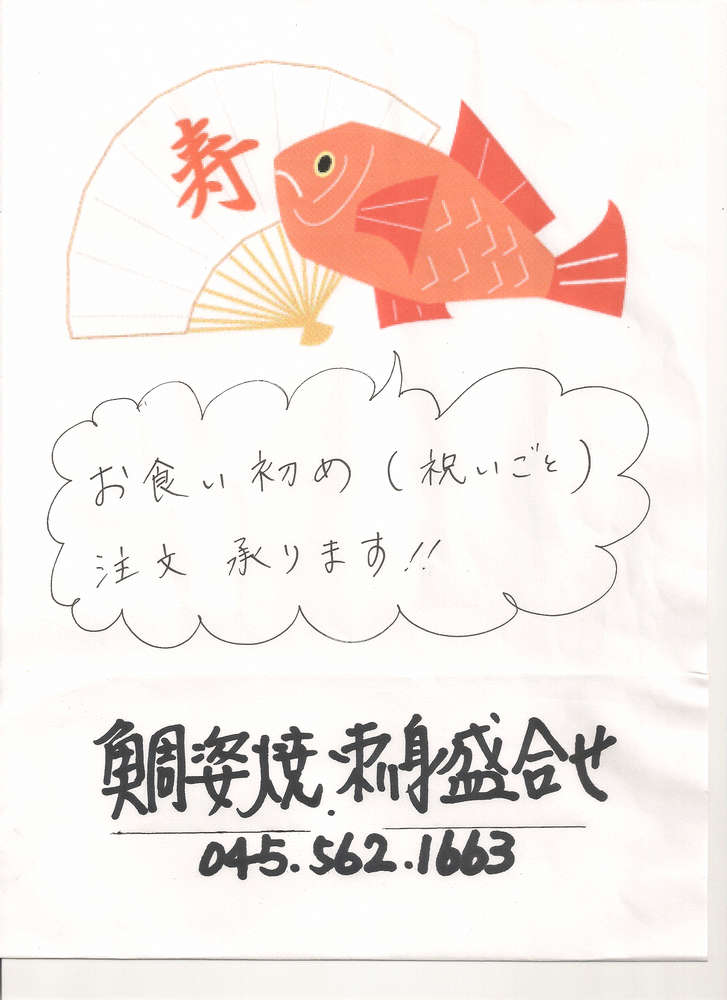 寿
お食い初め(祝いごと)
注文 承ります!!
鯛姿焼.刺身盛合せ
045.562.1663